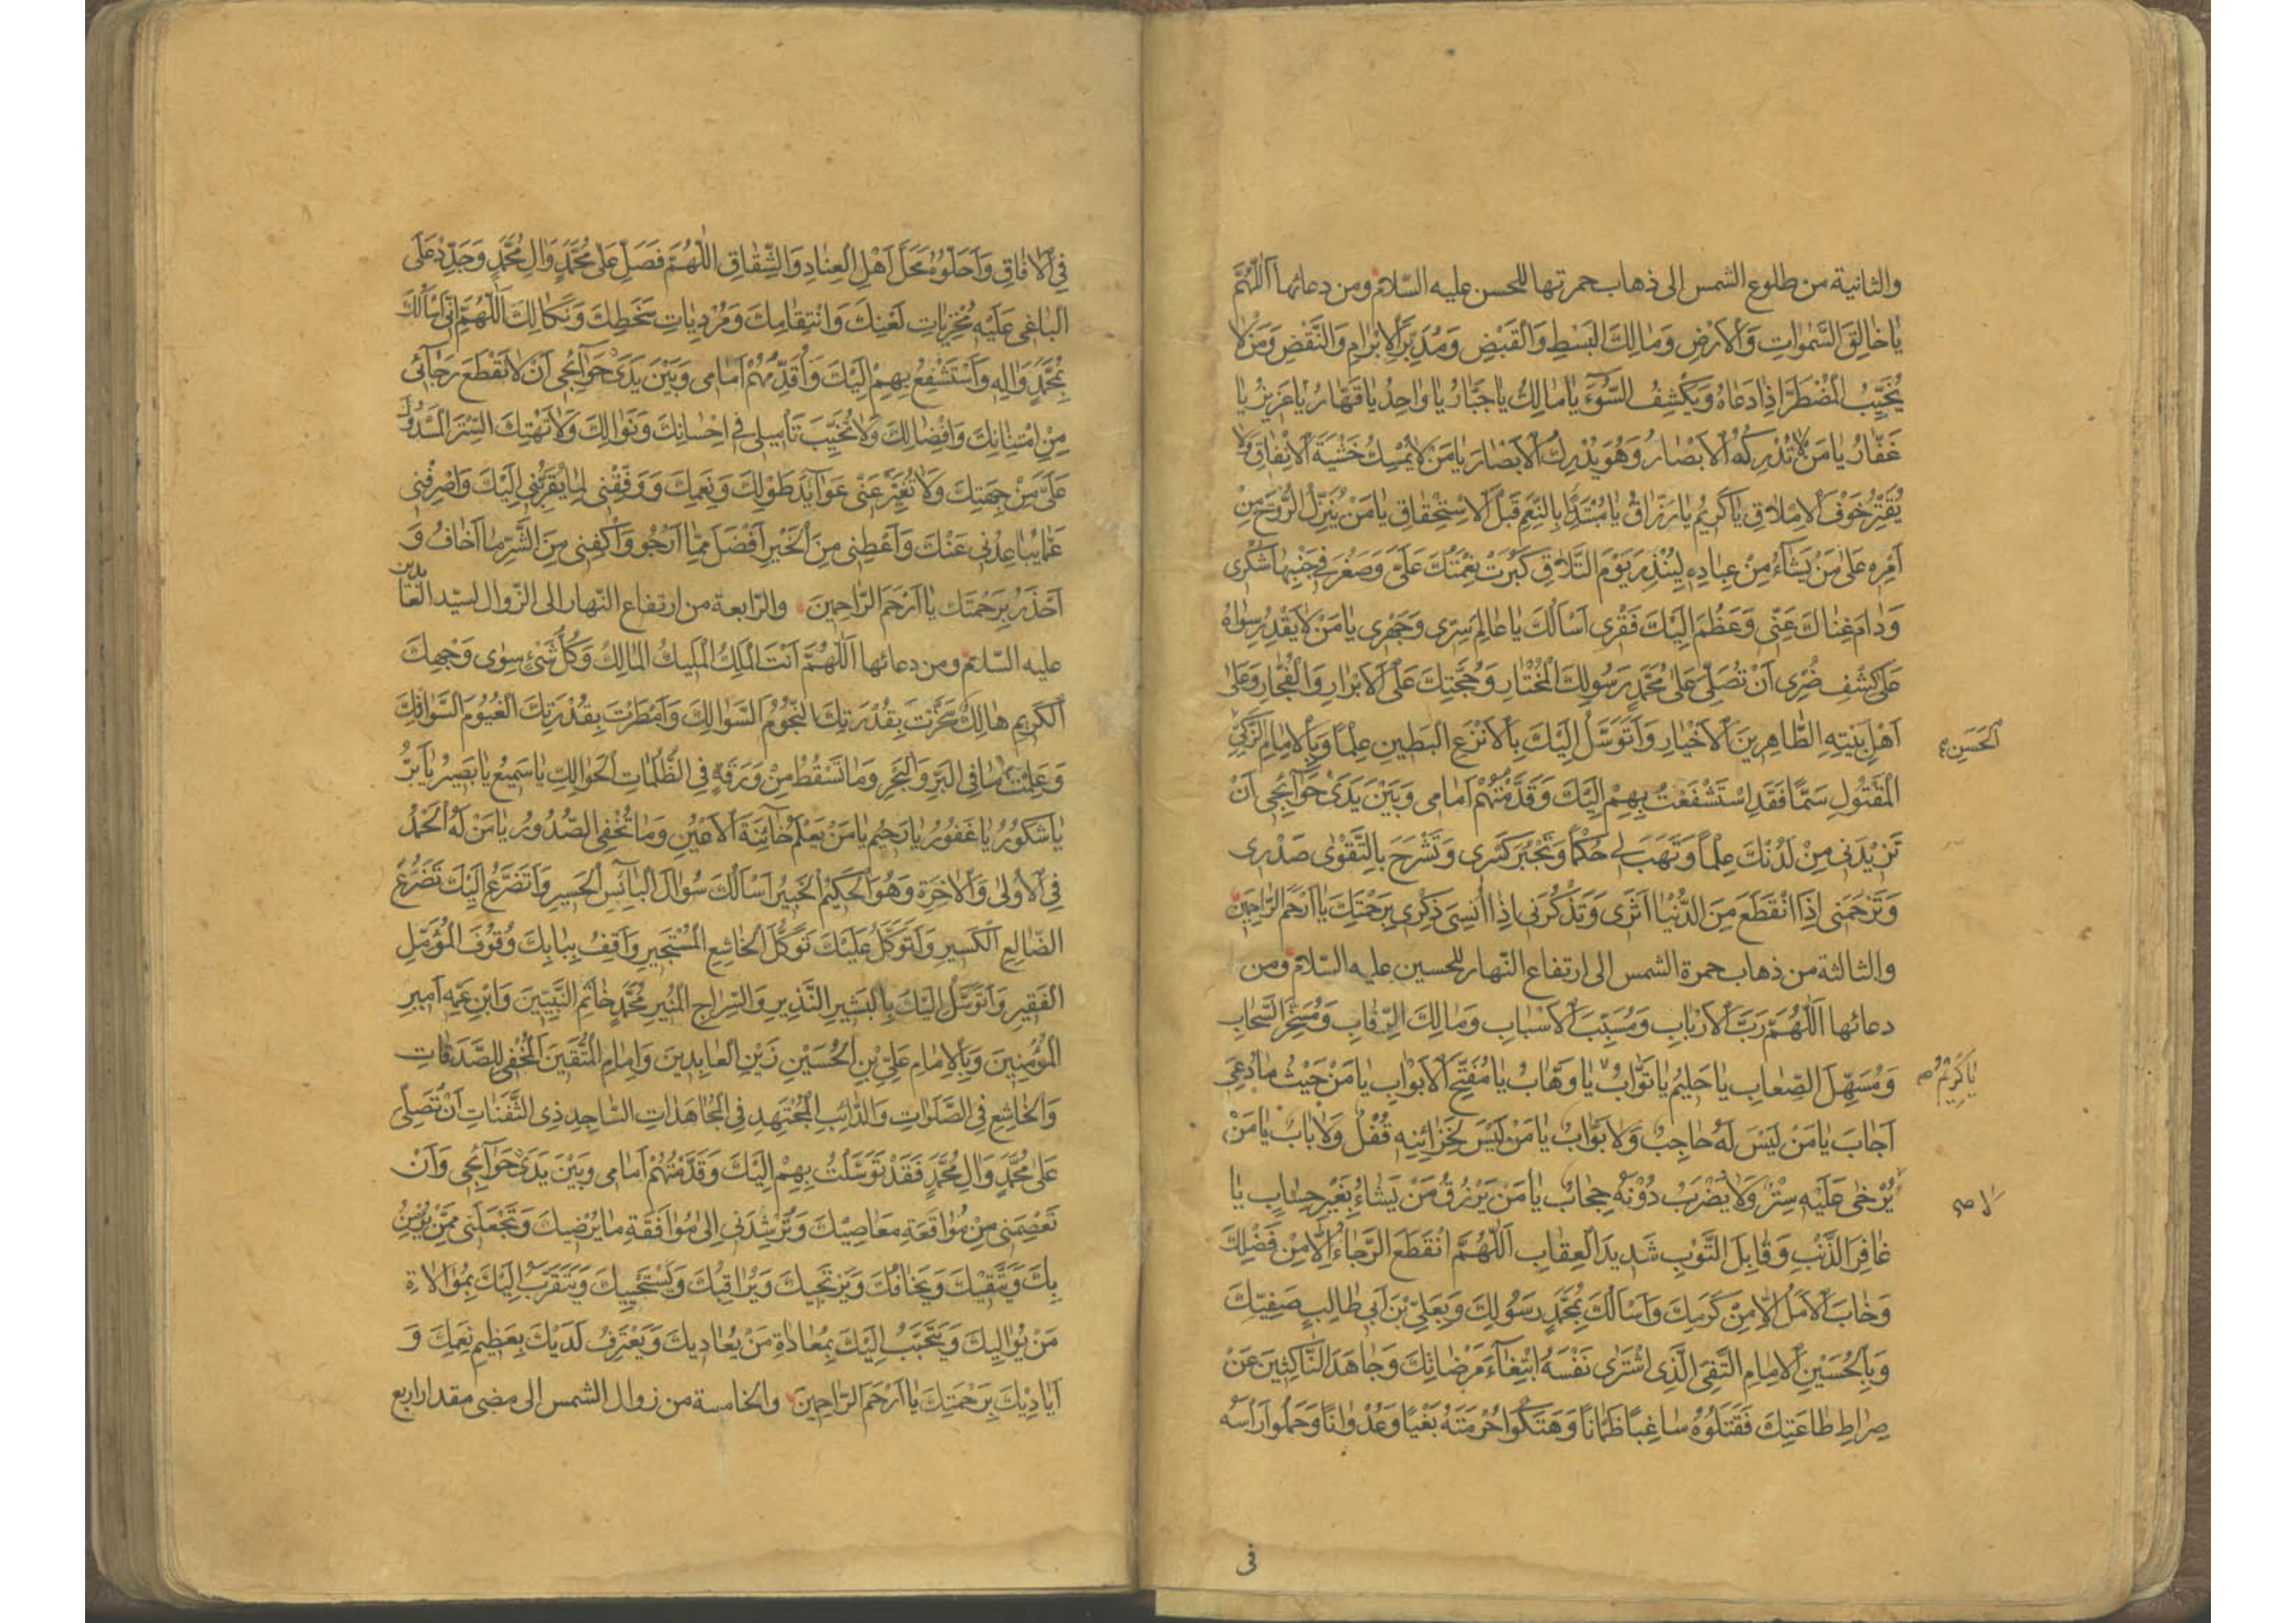 والثانية من طلوع الشمس الى ذهاب حمرتها للحسن عليه السّلام ومن دعائها اَللّٰهُمَّ
يٰا خٰالِقَ السَّمٰوٰاتِ وَالْاَرْضِ وَمٰالِكَ الْبَسْطِ وَالْقَبْضِ وَمُدَبِّرَ الْاِبْرٰامِ وَالنَّقْضِ وَمَنْ لٰا
يُخَيِّبُ الْمُضْطَرَّ اِذٰا دَعٰاهُ وَيَكْشِفُ السُّوۤءَ يٰا مٰالِكُ يٰا جَبّٰارُ يٰا وٰاحِدُ يٰا قَهّٰارُ يٰا عَزِيزُ يٰا
غَفّٰارُ يٰا مَنْ لٰا تُدْرِكُهُ الْاَبْصٰارُ وَهُوَ يُدْرِكُ الْاَبْصٰارَ يٰا مَنْ لٰا يُمْسِكُ خَشْيَةَ الْاِنْفٰاقِ وَلٰا
يُقَتِّرُ خَوْفَ الْاِمْلٰاقِ يٰا كَرِيمُ يٰا رَزّٰاقُ يٰا مُبْتَدِئًا بِالنِّعَمِ قَبْلَ الْاِسْتِحْقٰاقِ يٰا مَنْ يُنَزِّلُ الرُّوحَ مِنْ
اَمْرِهِ عَلٰى مَنْ يَشٰاۤءُ مِنْ عِبٰادِهِ لِيُنْذِرَ يَوْمَ التَّلٰاقِ كَبُرَتْ نِعْمَتُكَ عَلَىَّ وَصَغُرَ فِي جَنْبِهٰا شُكْرِى
وَدٰامَ غِنٰاكَ عَنِّى وَعَظُمَ اِلَيْكَ فَقْرِى اَسْاَلُكَ يٰا عٰالِمَ سِرِّى وَجَهْرِى يٰا مَنْ لٰا يَقْدِرُ سِوٰاهُ
عَلٰى كَشْفِ ضُرِّى اَنْ تُصَلِّىَ عَلٰى مُحَمَّدٍ رَسُولِكَ الْمُخْتٰارِ وَحُجَّتِكَ عَلَى الْاَبْرٰارِ وَالْفُجّٰارِ وَعَلٰى
اَهْلِ بَيْتِهِ الطّٰاهِرِينَ الْاَخْيٰارِ وَاَتَوَسَّلُ اِلَيْكَ بِالْاَنْزَعِ الْبَطِينِ عِلْمًا وَبِالْاِمٰامِ الزَّكِىِّ
اَلْحَسَنِ
الْمَقْتُولِ سَمًّا فَقَدِ اسْتَشْفَعْتُ بِهِمْ اِلَيْكَ وَقَدَّمْتُهُمْ اَمٰامى وَبَيْنَ يَدَىْ حَوٰاۤئِجِى اَنْ
تَزِيْدَنِى مِنْ لَدُنْكَ عِلْمًا وَتَهَبَ لِى حُكْمًا وَتَجْبُرَ كَسْرِى وَتَشْرَحَ بِالتَّقْوٰى صَدْرِى
وَتَرْحَمَنِى اِذَا انْقَطَعَ مِنَ الدُّنْيٰا اَثَرِى وَتَذْكُرَنِى اِذٰا اُنْسِىَ ذِكْرِى بِرَحْمَتِكَ يٰا اَرْحَمَ الرّٰاحِمِينَ
والثالثة من ذهاب حمرة الشمس الى ارتفاع النّهار للحسين عليه السّلام ومن
دعائها اَللّٰهُمَّ رَبَّ الْاَرْبٰابِ وَمُسَبِّبَ الْاَسْبٰابِ وَمٰالِكَ الرِّقٰابِ وَمُسَخِّرَ السَّحٰابِ
وَمُسَهِّلَ الصِّعٰابِ يٰا حَلِيمُ يٰا تَوّٰابُ يٰا وَهّٰابُ يٰا مُفَتِّحَ الْاَبْوٰابِ يٰا مَنْ حَيْثُ مٰا دُعِىَ
يٰا كَرِيْمُ صح
اَجٰابَ يٰا مَنْ لَيْسَ لَهُ حٰاجِبٌ وَلٰا بَوّٰابٌ يٰا مَنْ لَيْسَ لِخَزٰائِنِهِ قُفْلٌ وَلٰا بٰابٌ يٰا مَنْ
يُرْخٰى عَلَيْهِ سِتْرٌ وَلٰا يُضْرَبُ دُوْنَهُ حِجٰابٌ يٰا مَنْ يَرْزُقُ مَنْ يَشٰاۤءُ بِغَيْرِ حِسٰابٍ يٰا
لٰا صح
غٰافِرَ الذَّنْبِ وَقٰابِلَ التَّوْبِ شَدِيدَ الْعِقٰابِ اَللّٰهُمَّ انْقَطَعَ الرَّجٰاۤءُ اِلّٰا مِنْ فَضْلِكَ
وَخٰابَ الْاَمَلُ اِلّٰا مِنْ كَرَمِكَ وَاَسْاَلُكَ بِمُحَمَّدٍ رَسُوْلِكَ وَبِعَلِىِّ بْنِ اَبِى طٰالِبٍ صَفِيِّكَ
وَبِالْحُسَيْنِ الْاِمٰامِ التَّقِىِّ الَّذِى اشْتَرٰى نَفْسَهُ ابْتِغٰاۤءَ مَرْضٰاتِكَ وَجٰاهَدَ النّٰاكِثِينَ عَنْ
صِرٰاطِ طٰاعَتِكَ فَقَتَلُوْهُ سٰاغِبًا ظَمْاٰنًا وَهَتَكُوا حُرْمَتَهُ بَغْيًا وَعُدْوٰانًا وَحَمَلُوا رَاْسَهُ
فى
فِى الْاٰفٰاقِ وَاَحَلُّوْهُ مَحَلَّ اَهْلِ الْعِنٰادِ وَالشِّقٰاقِ اَللّٰهُمَّ فَصَلِّ عَلٰى مُحَمَّدٍ وَاٰلِ مُحَمَّدٍ وَجَدِّدْ عَلَى
الْبٰاغِى عَلَيْهِ مُخْزِيٰاتِ لَعْنِكَ وَانْتِقٰامِكَ وَمُرْدِيٰاتِ سَخَطِكَ وَنَكٰالِكَ اَللّٰهُمَّ اِنِّى اَسْاَلُكَ
بِمُحَمَّدٍ وَاٰلِهِ وَاَسْتَشْفِعُ بِهِمْ اِلَيْكَ وَاُقَدِّمُهُمْ اَمٰامى وَبَيْنَ يَدَىْ حَوٰاۤئِجِى اَنْ لٰا تَقْطَعَ رَجٰاۤئِى
مِنِ امْتِنٰانِكَ وَاِفْضٰالِكَ وَلٰا تُخَيِّبَ تَاْمِيلِى فِى اِحْسٰانِكَ وَنَوٰالِكَ وَلٰا تَهْتِكَ السِّتْرَ الْمَسْدُوْلَ
عَلَىَّ مِنْ جِهَتِكَ وَلٰا تُغَيِّرْ عَنِّى عَوٰاۤئِدَ طَوْلِكَ وَنِعَمِكَ وَوَفِّقْنِى لِمٰا يُقَرِّبُنِى اِلَيْكَ وَاصْرِفْنِى
عَمّٰا يُبٰاعِدُنِى عَنْكَ وَاَعْطِنِى مِنَ الْخَيْرِ اَفْضَلَ مِمّٰا اَرْجُو وَاكْفِنِى مِنَ الشَّرِّ مٰا اَخٰافُ وَ
اَحْذَرُ بِرَحْمَتِكَ يٰا اَرْحَمَ الرّٰاحِمِينَ والرّابعة من ارتفاع النّهار الى الزّوال لسيّد العابدين
عليه السّلام ومن دعائها اَللّٰهُمَّ اَنْتَ الْمَلِكُ الْمَلِيكُ الْمٰالِكُ وَكُلُّ شَىْءٍ سِوٰى وَجْهِكَ
الْكَرِيمِ هٰالِكٌ سَخَّرْتَ بِقُدْرَتِكَ النُّجُوْمَ السَّوٰالِكَ وَاَمْطَرْتَ بِقُدْرَتِكَ الْغُيُوْمَ السَّوٰافِكَ
وَعَلِمْتَ مٰا فِى الْبَرِّ وَالْبَحْرِ وَمٰا تَسْقُطُ مِنْ وَرَقَةٍ فِى الظُّلُمٰاتِ الْحَوٰالِكِ يٰا سَمِيعُ يٰا بَصِيْرُ يٰا بَرُّ
يٰا شَكُوْرُ يٰا غَفُوْرُ يٰا رَحِيْمُ يٰا مَنْ يَعْلَمُ خٰاۤئِنَةَ الْاَعْيُنِ وَمٰا تُخْفِى الصُّدُوْرُ يٰا مَنْ لَهُ الْحَمْدُ
فِى الْاُوْلٰى وَالْاٰخِرَةِ وَهُوَ الْحَكِيمُ الْخَبِيْرُ اَسْاَلُكَ سُوٰالَ الْبٰاۤئِسِ الْحَسِيرِ وَاَتَضَرَّعُ اِلَيْكَ تَضَرُّعَ
الضّٰالِعِ الْكَسِيرِ وَاَتَوَكَّلُ عَلَيْكَ تَوَكُّلَ الْخٰاشِعِ الْمُسْتَجِيرِ وَاَقِفُ بِبٰابِكَ وُقُوْفَ الْمُؤَمِّلِ
الْفَقِيرِ وَاَتَوَسَّلُ اِلَيْكَ بِالْبَشِيرِ النَّذِيرِ وَالسِّرٰاجِ الْمُنِيرِ مُحَمَّدٍ خٰاتَمِ النَّبِيِّينَ وَابْنِ عَمِّهِ اَمِيرِ
الْمُؤْمِنِينَ وَبِالْاِمٰامِ عَلِىِّ بْنِ الْحُسَيْنِ زَيْنِ الْعٰابِدِينَ وَاِمٰامِ الْمُتَّقِينَ الْمُخْفِى لِلصَّدَقٰاتِ
وَالْخٰاشِعِ فِى الصَّلَوٰاتِ وَالدّٰائِبِ الْمُجْتَهِدِ فِى الْمُجٰاهَدٰاتِ السّٰاجِدِ ذِى الثَّفِنٰاتِ اَنْ تُصَلِّىَ
عَلٰى مُحَمَّدٍ وَاٰلِ مُحَمَّدٍ فَقَدْ تَوَسَّلْتُ بِهِمْ اِلَيْكَ وَقَدَّمْتُهُمْ اَمٰامى وَبَيْنَ يَدَىْ حَوٰاۤئِجِى وَاَنْ
تَعْصِمَنِى مِنْ مُوٰاقَعَةِ مَعٰاصِيْكَ وَتُرْشِدَنِى اِلٰى مُوٰافَقَةِ مٰا يُرْضِيكَ وَتَجْعَلَنِى مِمَّنْ يُؤْمِنُ
بِكَ وَيَتَّقِيْكَ وَيَخٰافُكَ وَيَرْتَجِيكَ وَيُرٰاقِبُكَ وَيَسْتَحْيِيكَ وَيَتَقَرَّبُ اِلَيْكَ بِمُوٰالٰاةِ
مَنْ يُوٰالِيكَ وَيَتَحَبَّبُ اِلَيْكَ بِمُعٰادٰاةِ مَنْ يُعٰادِيكَ وَيَعْتَرِفُ لَدَيْكَ بِعَظِيمِ نِعَمِكَ وَ
اَيٰادِيْكَ بِرَحْمَتِكَ يٰا اَرْحَمَ الرّٰاحِمِينَ والخامسة من زوال الشمس الى مضى مقدار اربع